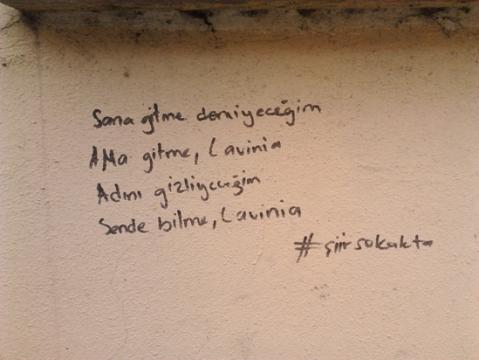 Sana gitme demiyeceğim
AMa gitme, Lavinia
Adını gizliyeceğim
Sende bilme, Lavinia
#şiirsokakta